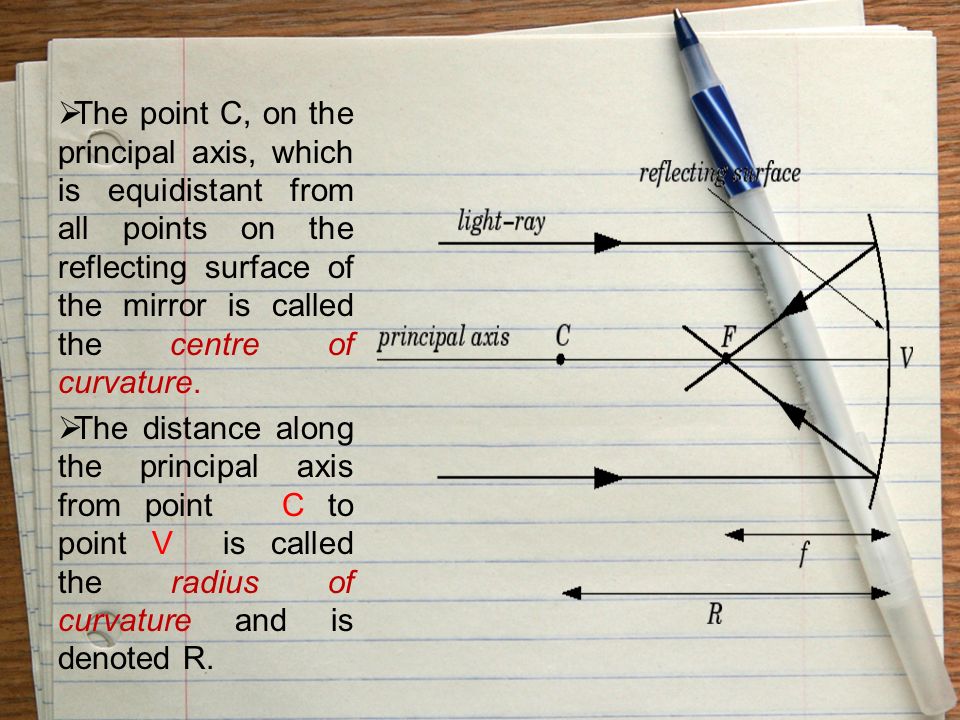 ➢The point C, on the
principal axis, which
is equidistant from
all points on the
reflecting surface of
the mirror is called
the centre of
curvature.
➢The distance along
the principal axis
from point C to
point V is called
the radius of
curvature and is
denoted R.
reflecting surface
light-ray
principal axis C F V
f
R